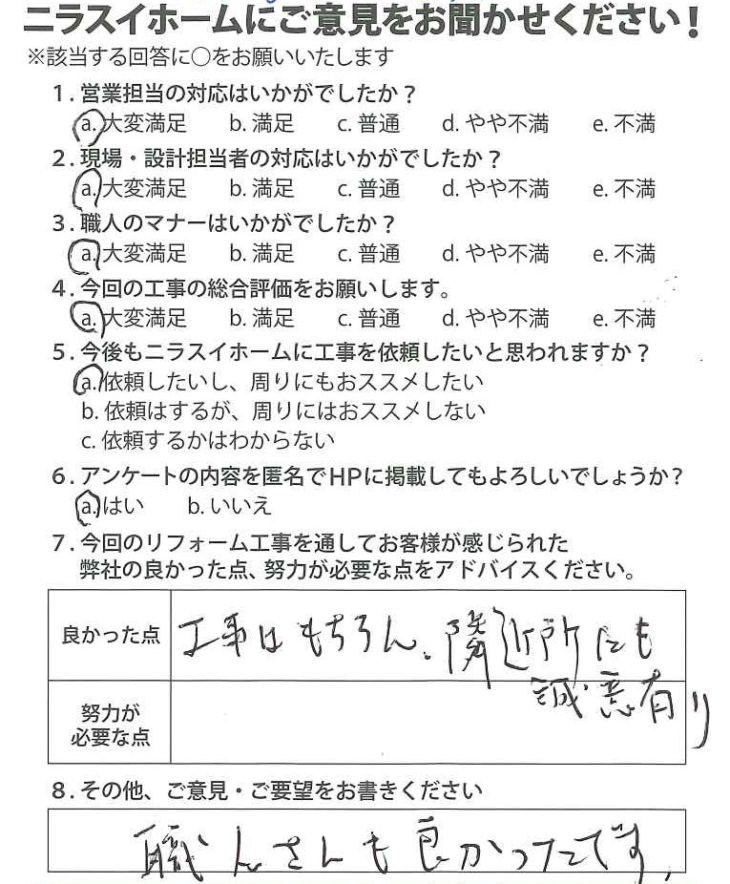 ニラスイホームにご意見をお聞かせください!
※該当する回答に○をお願いいたします
1.営業担当の対応はいかがでしたか?
a.大変満足 b.満足 c.普通 d.やや不満 e.不満
2.現場・設計担当者の対応はいかがでしたか?
a.大変満足 b.満足 c.普通 d.やや不満 e.不満
3.職人のマナーはいかがでしたか?
a.大変満足 b.満足 c.普通 d.やや不満 e.不満
4.今回の工事の総合評価をお願いします。
a.大変満足 b.満足 c.普通 d.やや不満 e.不満
5.今後もニラスイホームに工事を依頼したいと思われますか?
a.依頼したいし、周りにもおススメしたい
b.依頼はするが、周りにはおススメしない
c.依頼するかはわからない
6.アンケートの内容を匿名でHPに掲載してもよろしいでしょうか?
a.はい b.いいえ
7.今回のリフォーム工事を通してお客様が感じられた
弊社の良かった点、努力が必要な点をアドバイスください。
良かった点 工事はもちろん、隣近所にも
誠意有り
努力が
必要な点
8.その他、ご意見・ご要望をお書きください
職人さんも良かったです、